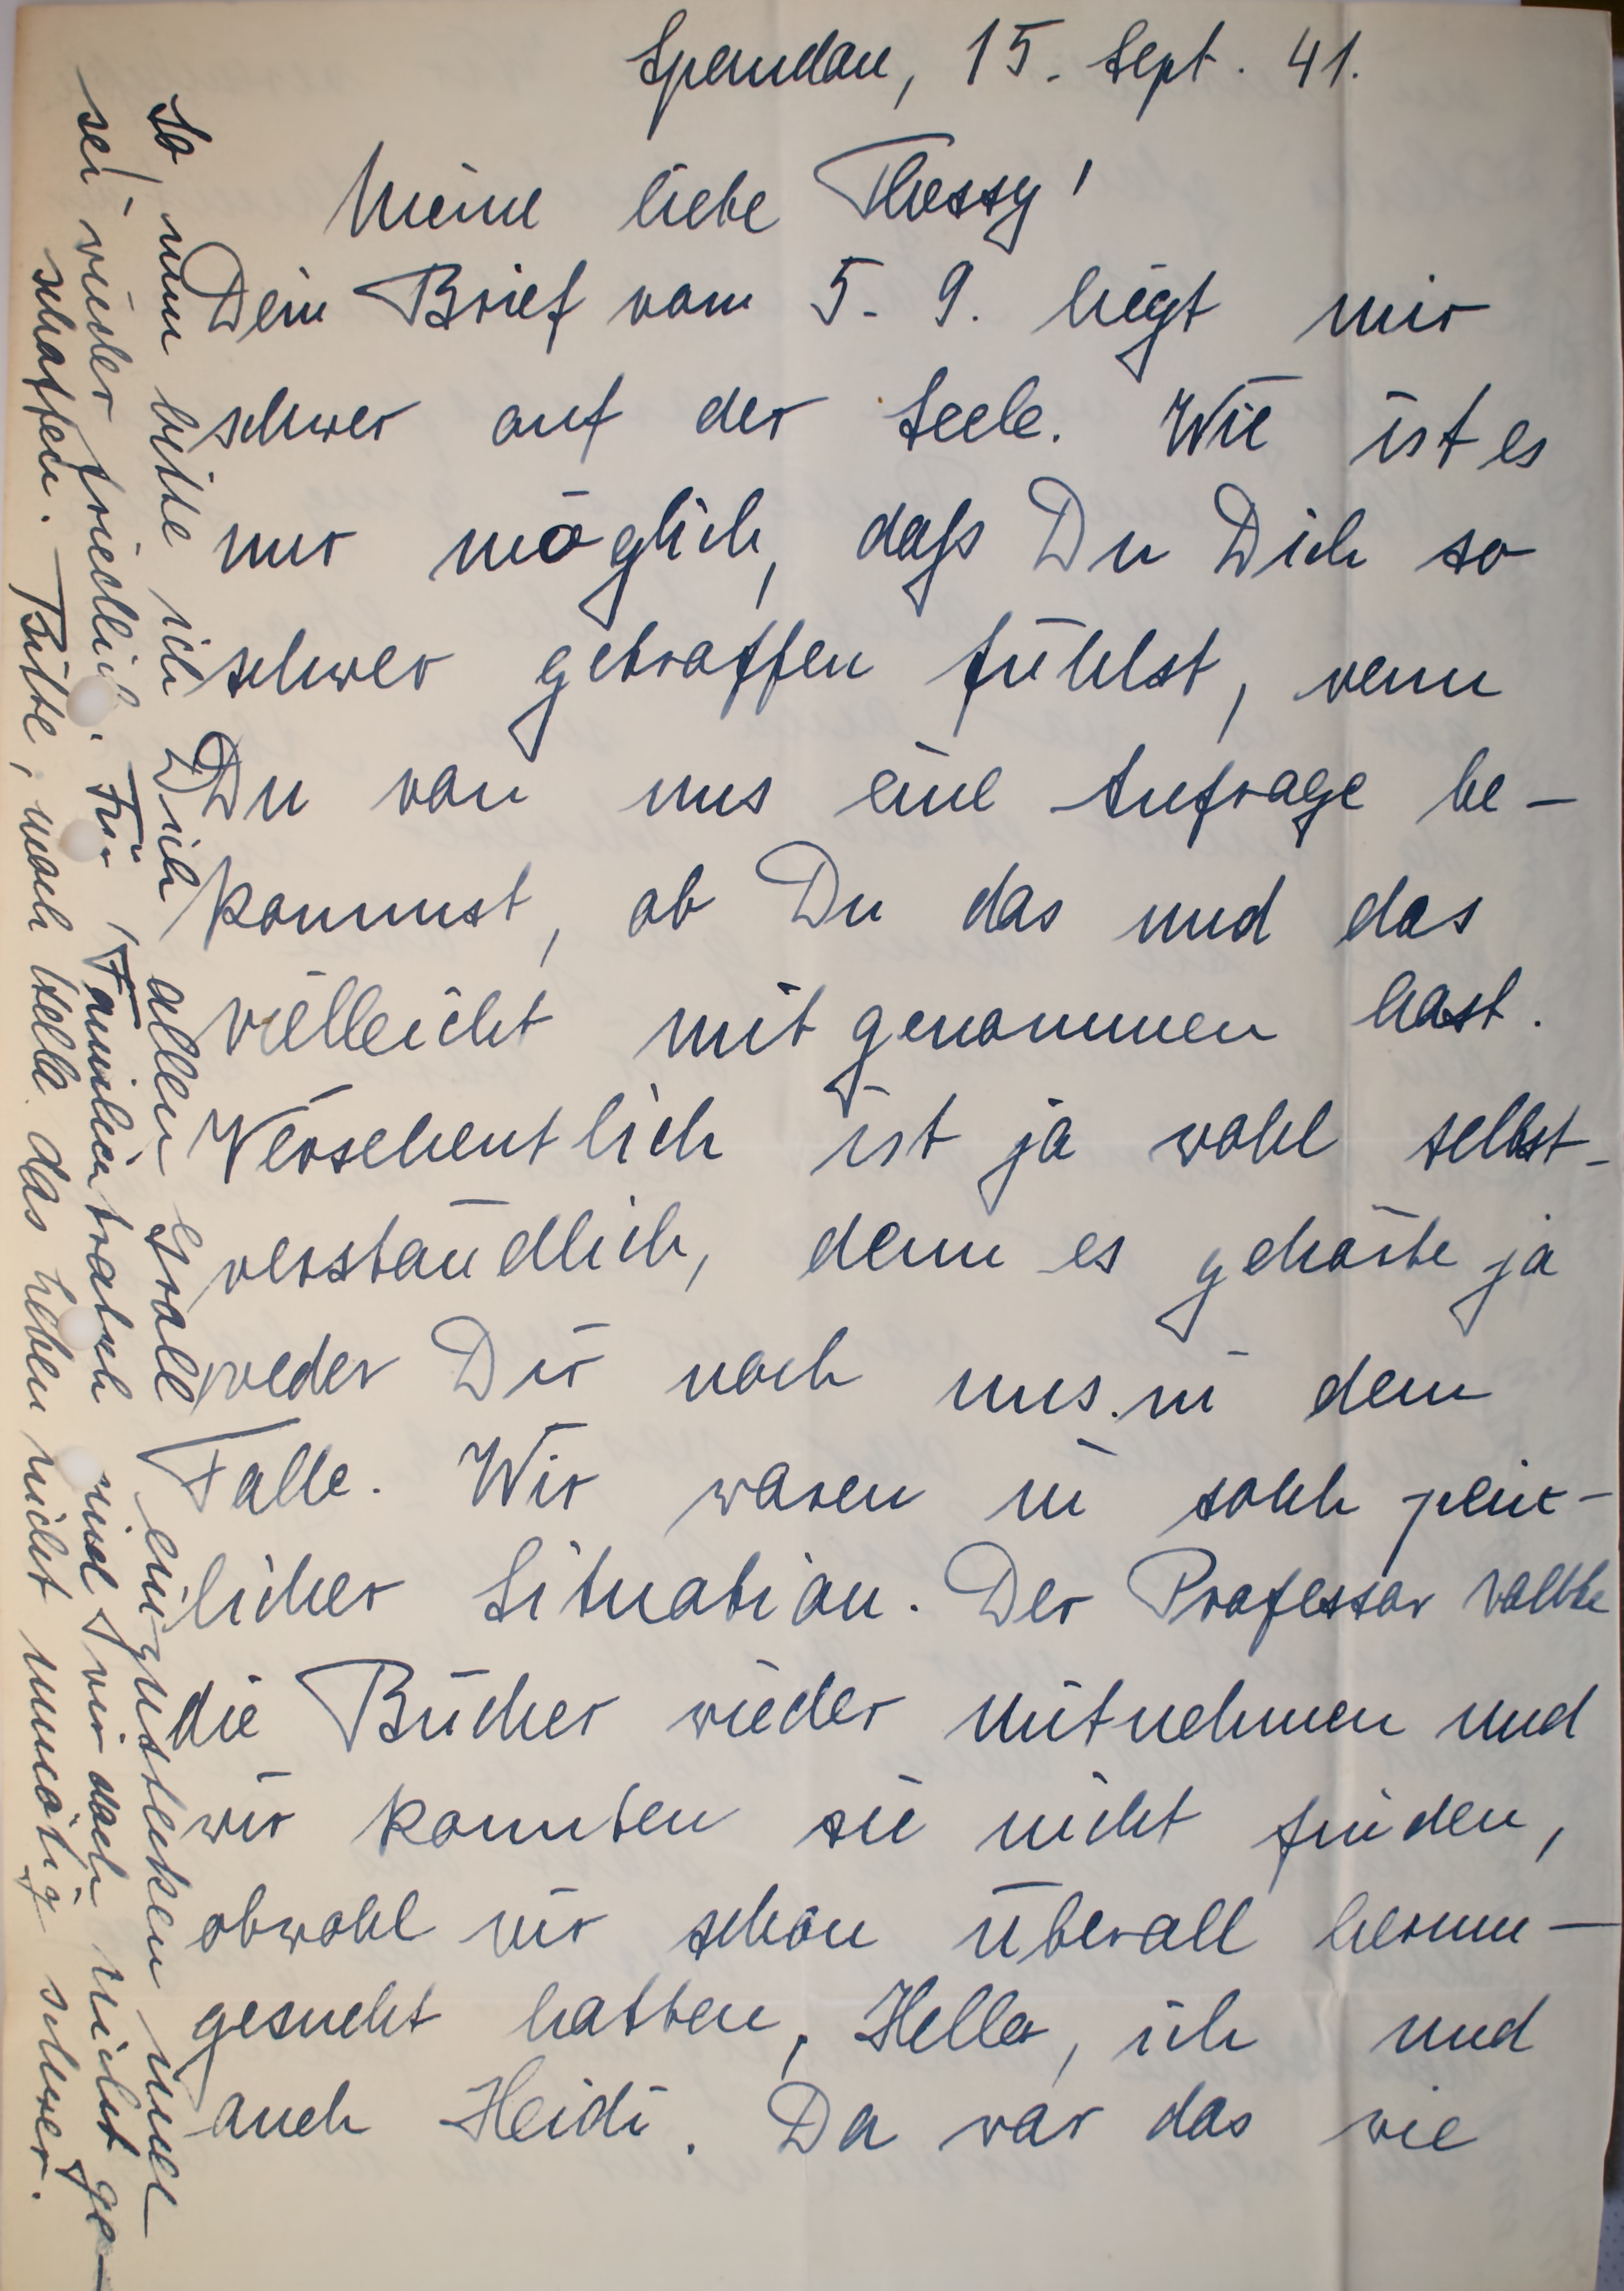 Spandau, 15. Sept. 41.
Meine liebe Flossy!
Dein Brief vom 5. 9. liegt mir
schwer auf der Seele. Wie ist es
nur möglich, daß Du Dich so
schwer getroffen fühlst, wenn
Du von uns eine Anfrage be-
kommst, ob Du das und das
vielleicht mitgenommen hast.
Versehentlich ist ja wohl selbst-
verständlich, denn es gehörte ja
weder Dir noch uns in dem
Falle. Wir waren in solch pein-
licher Situation. Der Professor wollte
die Bücher wieder mitnehmen und
wir konnten sie nicht finden,
obwohl wir schon überall herum-
gesucht hatten, Hella, ich und
auch Heidi. Da war das wie
So nun bitte ich Dich allen Groll einzustecken und
sei wieder friedlich. Für Familienkrach sind wir doch nicht ge-
schaffen. Bitte, mach Hella das Leben nicht unnötig schwer.